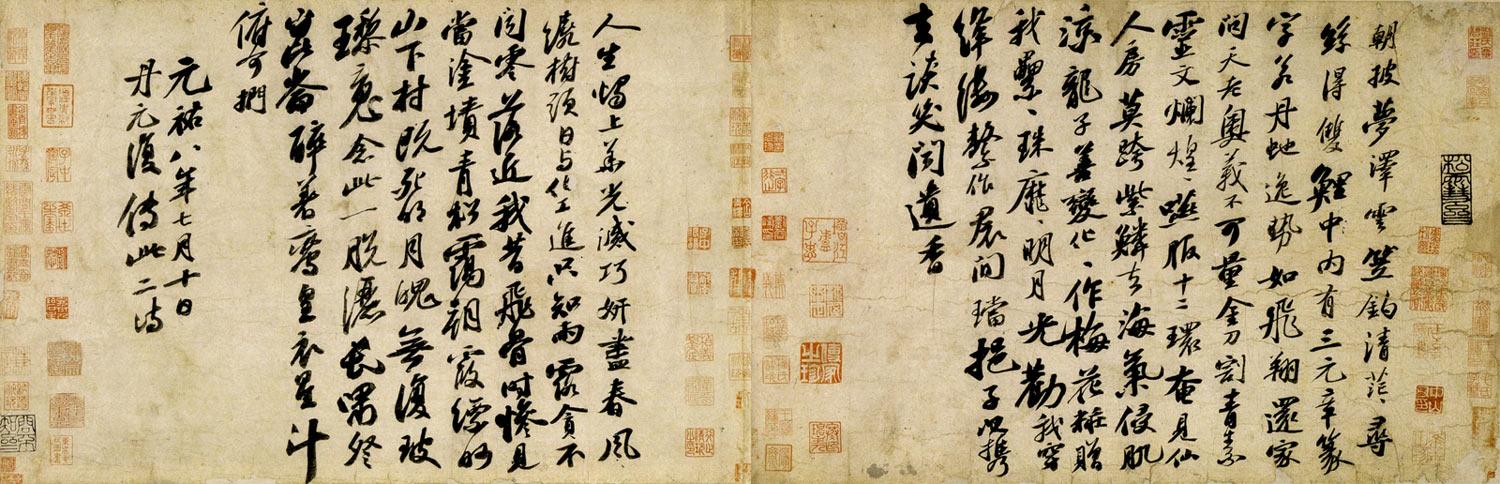 朝披夢澤雲笠釣清茫〻尋
絲得雙鯉中內有三元章篆
字若丹虵逸勢如飛翔還家
問天老奧義不可量金刀割青素
靈文爛煌〻嚥服十二環奄見仙
人房莫跨紫鱗去海氣侵肌
涼龍子善變化〻作梅花粧贈
我纍〻珠靡〻明月光勸我穿
絳縷繫作裠間璫挹子以攜
去談笑聞遺香
人生燭上華光滅巧妍盡春風
繞樹頭日與化工進只知雨露貪不
聞零落近我昔飛骨時慘見
當塗墳青松靄朝霞縹緲
山下村既死明月魄無復玻
瓈魂念此一脫灑長嘯登
崑崙醉著鸞皇衣星斗
俯可捫
元祐八年七月十日
丹元復傳此二詩